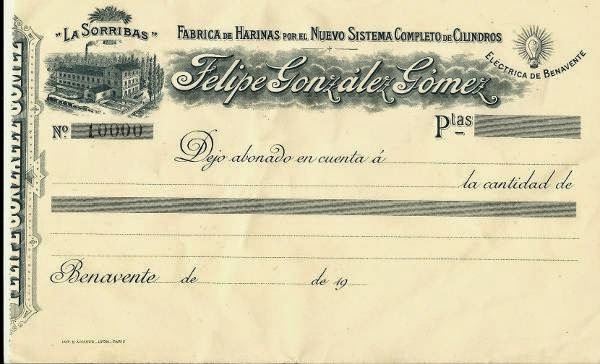 "LA SORRIBAS"
FABRICA DE HARINAS POR EL NUEVO SISTEMA COMPLETO DE CILINDROS
ELECTRICA DE BENAVENTE
Felipe González Gómez
Nº 10000
Ptas
Dejo abonado en cuenta á
la cantidad de
Benavente de de 19
FELIPE GONZALEZ GOMEZ